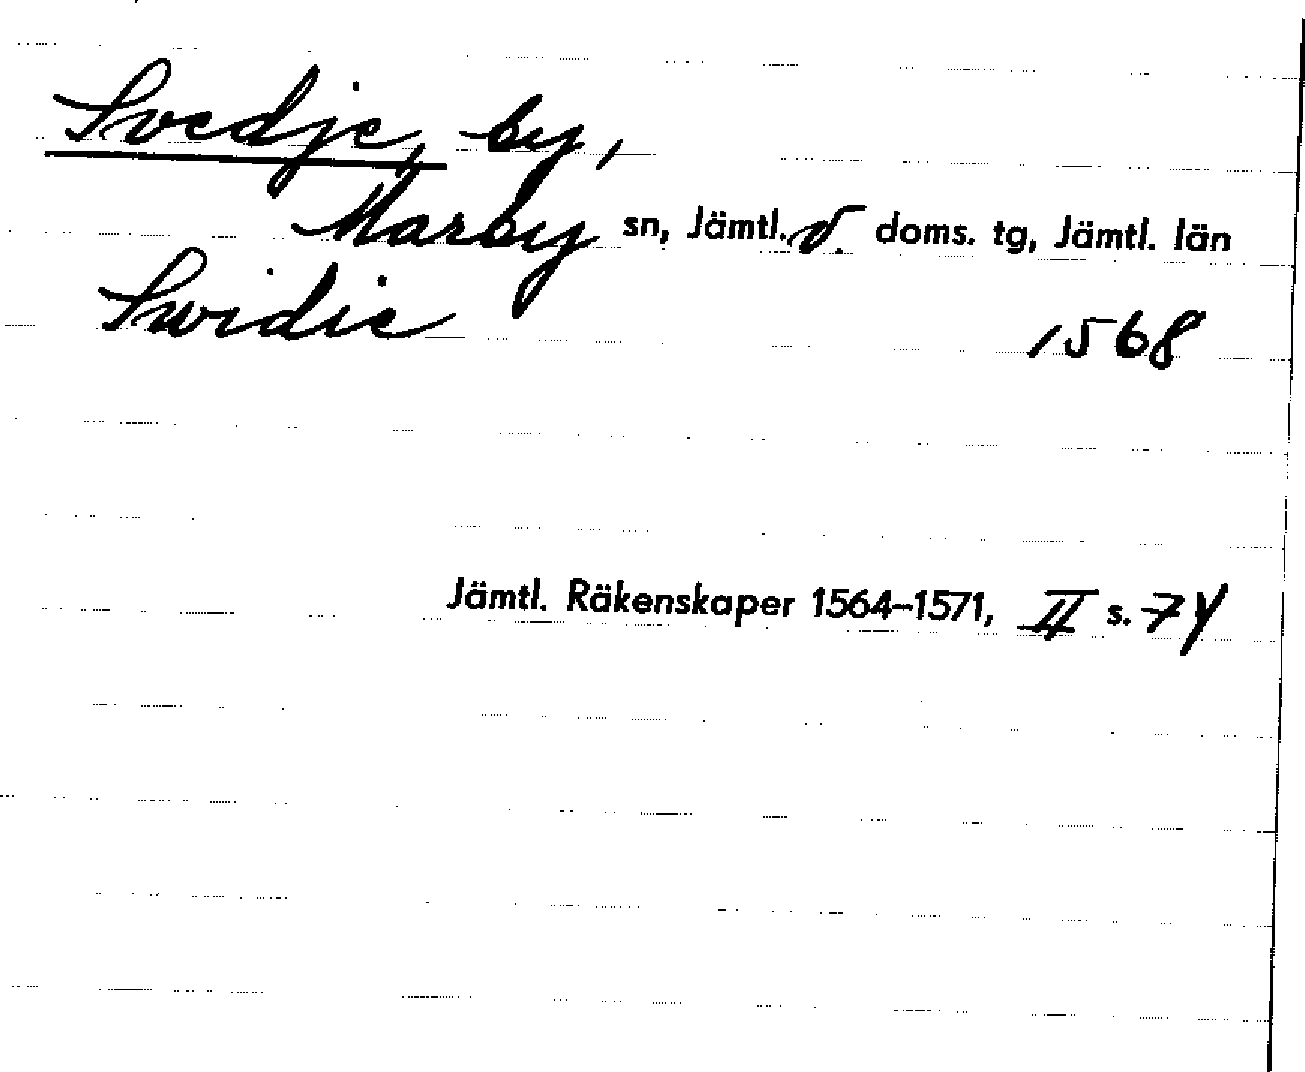 Svedje, by,
Marby sn, Jämtl. v. doms. tg, Jämtl. län
Swidie 1568
Jämtl. Räkenskaper 1564–1571, II s. 74